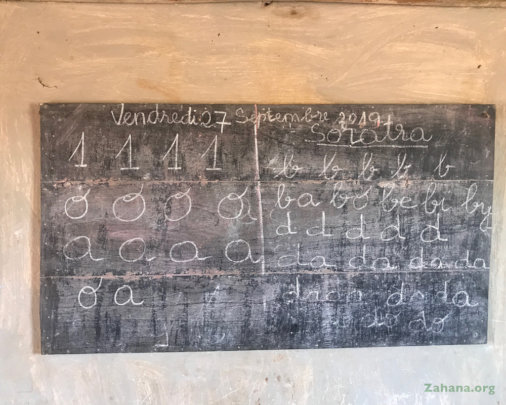 Vendredi 27 Septembre 2019
Soratra
1 1 1 1
b b b b b
o o o o
ba bo be bi by
d d d d d
a a a a
da da da da
o a
da da
do do
Zahana.org